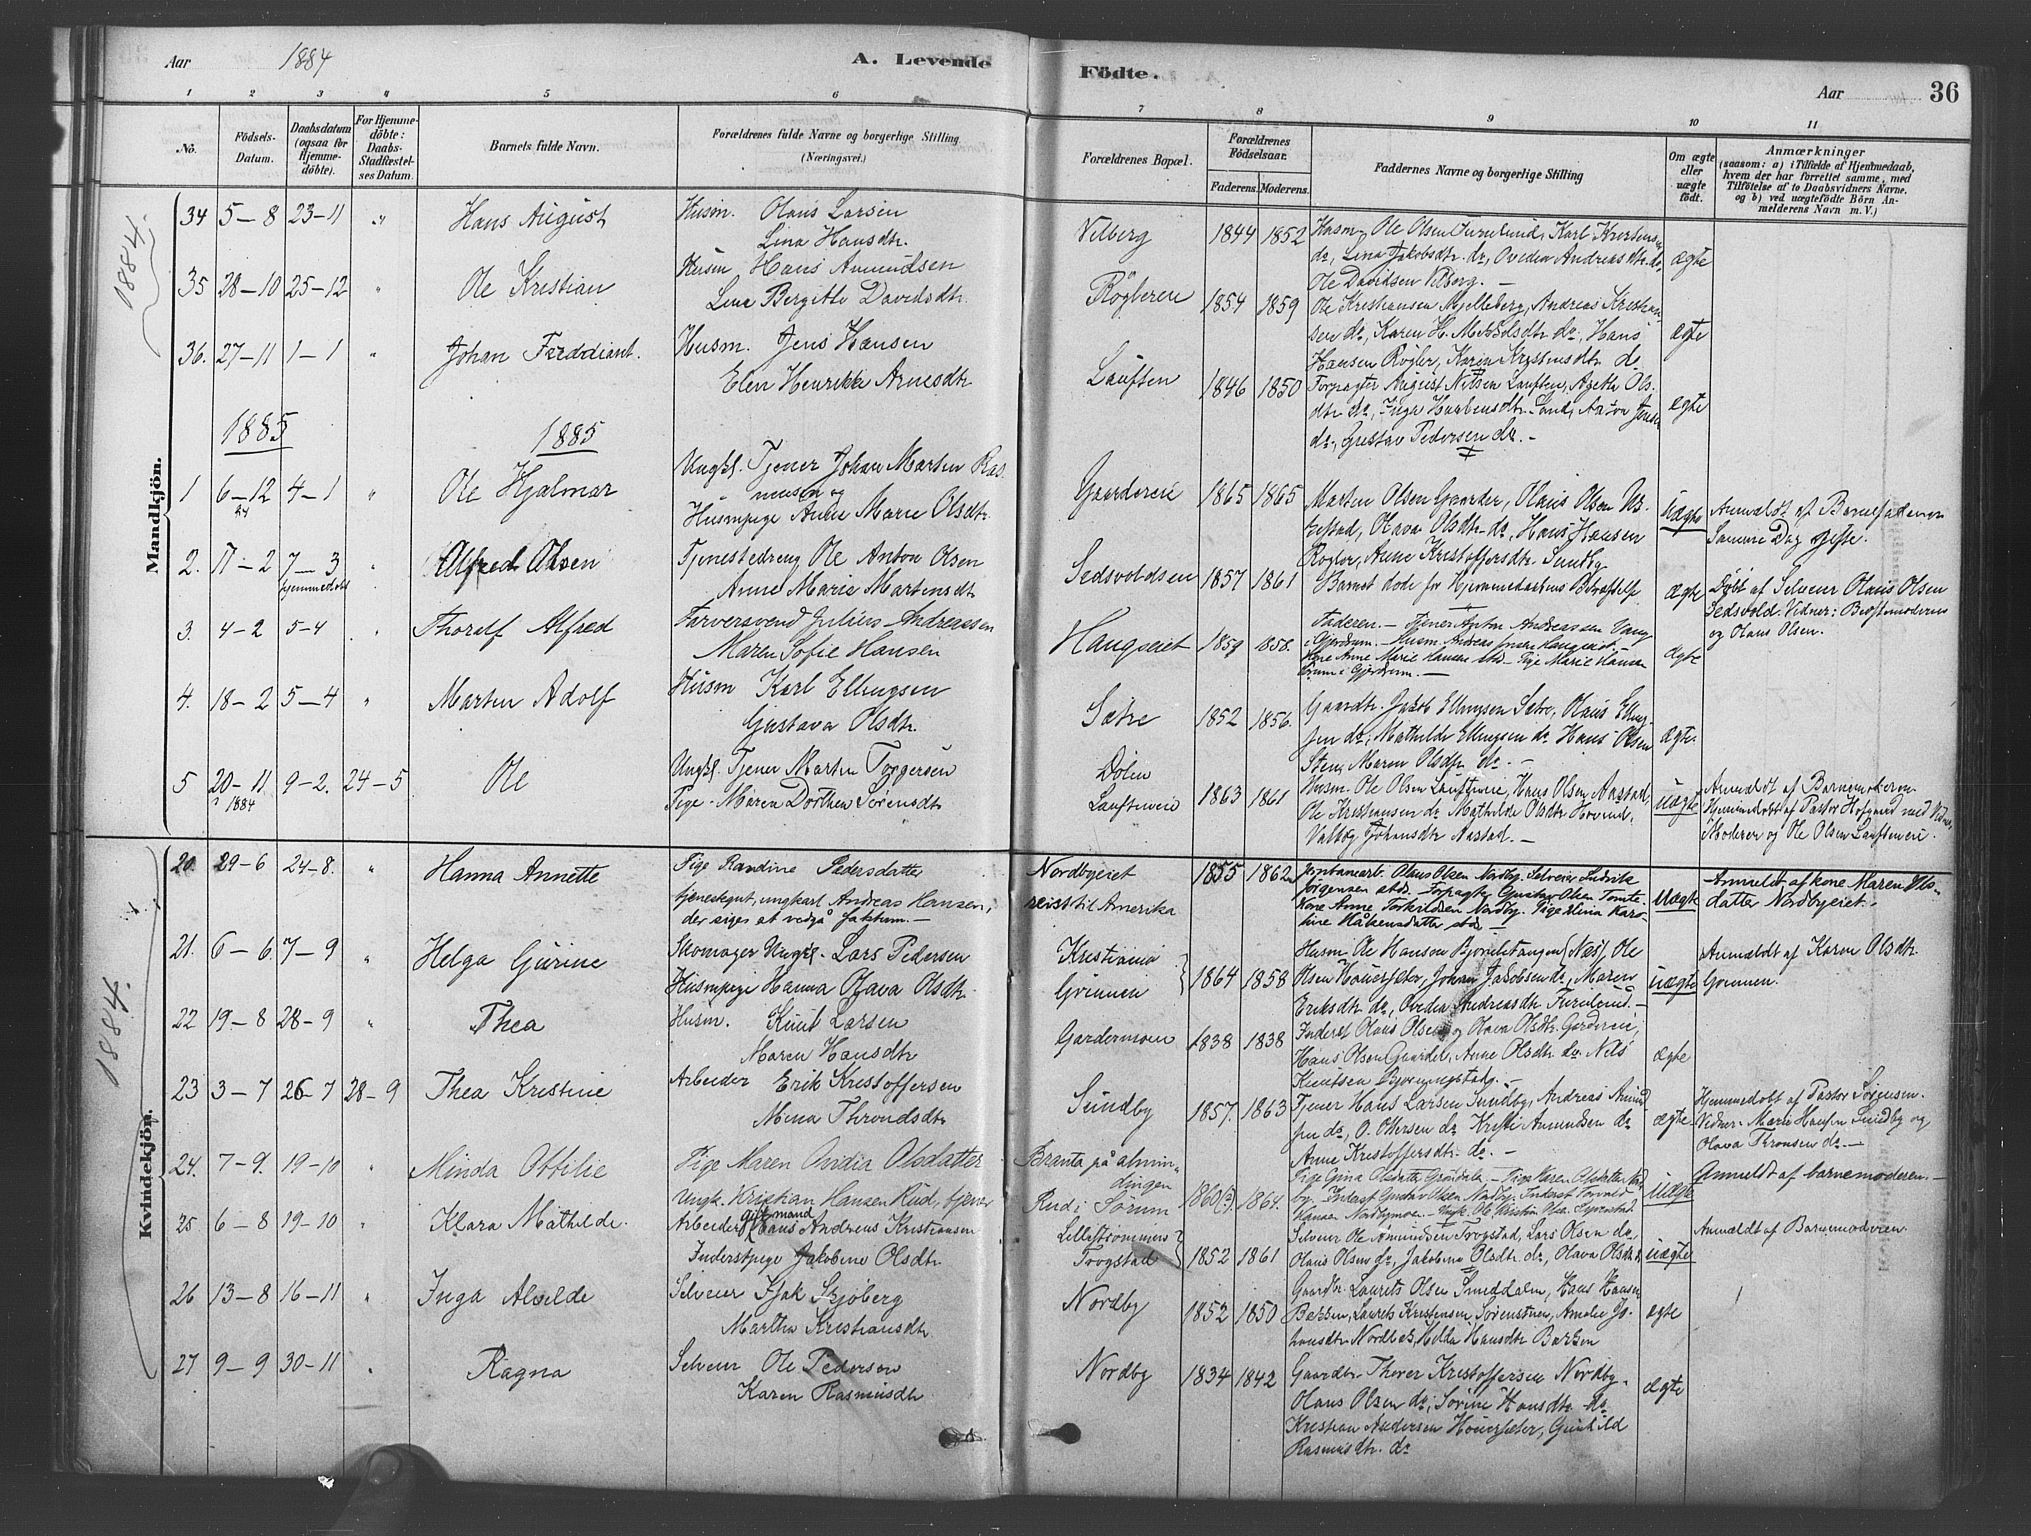 Aar 1884 A. Levende
Födte. Aar 36
1 2 3 4 5 6 7 8 9 10 11
No.
Födsels-Datum.
Daabsdatum (ogsaa for Hjemmedöbte).
For Hjemmedöbte: Daabs-Stadfæstelses Datum.
Barnets fulde Navn.
Forældrenes fulde Navne og borgerlige Stilling (Næringsvei).
Forældrenes Bopæl.
Forældrenes Födselsaar.
Faderens. Moderens.
Faddernes Navne og borgerlige Stilling
Om ægte eller uægte födt.
Anmærkninger
(saasom: a) i Tilfælde af Hjemmedaab, hvem der har forrettet samme, med Tilföielse af to Daabsvidners Navne. og b) ved uægtefödte Börn Anmelderens Navn m. V.)
1884.
Mandkjön.
34 5-8 23-11 " Hans August Husm. Olaus Larsen
Lina Hansdtr. Vilberg 1844 1852 Husm. Ole Olsen Furulund, Karl Kristensen
do, Lina Jakobsdtr. do, Ovedia Andreasdtr. do,
Ole Davidsen Vilberg. ægte
35 28-10 25-12 " Ole Kristian Husm Hans Amundsen
Lina Bergitte Davidsdtr. Röglereie 1854 1859 Ole Kristiansen Mjelleberg, Andreas Kristian-
sen do, Karen H. do, Hans
Hansen Rögler, Karen Kristensdtr do ægte
36. 27-11 1-1 " Johan Ferddiant. Husm. Jens Hansen
Elen Henrikke Arnesdtr Lauften 1846 1850 Forpagter August Nilsen Lauften, Agethe Ols-
dtr do, Inga do, Gustav Pedersen do. ægte
1885 1885
1 6-12 84 4-1 " Ole Hjalmar Ungkl. Tjener Johan Marten Ras-
mussen og
Huspige Anne Marie Olsdtr. Gaardereie 1865 1865 Marten Olsen Gaarder, Olaus Olsen
Olava Olsdtr do, Hans Hansen
Rögler, Anne Kristoffersdtr. Sundby uægte Anmeldt af Barnefaderen
Samme Dag gifte.
2. 17-2 7-3 hjemmedöbt " Alfred Olsen Tjenestedreng Ole Anton Olsen
Anne Marie Martensdtr Sedsvoldsen 1857 1861 Barnet döde för Hjemmedaabens Bekræftelse ægte Döbt af Selveier Olaus Olsen
Sedsvold. Vidner: Bedstemoderen
og Olaus Olsen.
3. 4-2 5-4 " Thorolf Alfred Farversvend Julius Andreassen
Maren Sofie Hansen Haugseiet 1859 1858. Faderen. - Tjener Anton Andreassen Vaug
i Gjerdrum. - Husm. Andreas Jensen Haugseiet -
Kone Anne Marie Hansen stds - Pige Marie Hansen
i Gjerdrum. - ægte
4. 18-2 5-4 " Marten Adolf Husm Karl Ellingsen
Gustava Olsdtr. Sætre 1852 1856. Gaardbr. Jakob Ellingsen Sætre, Olaus Elling-
sen do, Mathilde Ellingsen do, Hans Olsen
Sten, Maren Olsdtr do. - ægte.
5 20-11 1884 9-2. 24-5 Ole Ungkl. Tjener Marten Toggersen
Pige - Maren Dorthea Sörensdtr Dölen
Lauftneie 1863 1861 Husm. Ole Olsen Lauftneie, Hans Olsen Aastad,
Ole Kristiansen do Mathilde Olsdtr Hovind,
Valborg Johansdtr Aastad. - uægte Anmeldt af Barnemoderen
Hjemmedöbt af Pastor Hofgaard med Vidner
Moderen og Ole Olsen Lauftneie.
Kvindekjön.
1884.
20. 29-6 24-8. " Hanna Annette Pige Randine Pedersdatter
tjenestegut, ungkarl Andreas Hansen,
der siges at vedgå faktum. - Nordbyeiet
reist til Amerika 1855 1862 Olaus Olsen Nordby. Selveier Ludvik
Jörgensen stds. Forpagter Gustav Olsen
Kone Anne Torkildsen Nordby. Pige Elina Karo-
line stds - uægte Anmeldt af kone Maren Ols-
datter Nordbyeiet.
21. 6-6 7-9 " Helga Gurine Skomager Ungkl. Lars Pedersen
Huspige Hanna Olava Olsdtr. Kristiania
Grinnen 1864 1858 Husm Ole Hansen (Næs), Ole
Olsen Hauerseter, Johan Jakobsen do, Maren
Eriksdtr do, Ovidia Andreasdtr Furulund. - uægte Anmeldt af Karen Olsdtr.
Grinnen.
22 19-8 28-9 " Thea Husm. Knut Larsen
Maren Hansdtr Gardermoen 1838 1838 Inderst Olaus Olsen og Olava Olsdtr. Garderie,
Hans Olsen Gaarder, Anne Olsdtr do Nils
Knutsen ægte
23 3-7 26-7 28-9 Thea Kristine Arbeider Erik Kristoffersen
Mina Throndsdtr Sundby 1857. 1863 Tjener Hans Larsen Sundby, Andreas Amund-
sen do, O. Olsen do Kristi Amundsen do
Anne Kristoffersdtr. do. - ægte Hjemmedöbt af Pastor Sörensen.
Vidner: Marie Hansen Sundby og
Olava Thronsen do. -
24. 7-9. 19-10 " Minda Ottilie Pige Maren Ovidia Olsdatter
Ungk. Kristian Hansen Rud, tjener Branta på almin-
dingen
Rud i Sörum 1860(?) 1864. Pige Gina Olsdatter Gröndal - Pige Karen Olsdatter Nord-
by. Inderst Gustav Olsen Nordby. Inderst
Hansen Nordbymoen - Ungk. Ole Kristian uægte Anmeldt af barnemoderen. -
25 6-8 19-10 " Klara Mathilde. Arbeider gift mand Hans Andreas Kristiansen
Inderstpige Jakobine Olsdtr Lilleströmmen?
Trogstad 1852 1861 Selveier Ole Amundsen Trogstad, Lars Olsen do,
Olaus Olsen do, Jakobine Olsdtr do, Olava Olsdtr uægte Anmeldt af Barnemoderen
26 13-8 16-11 " Inga Alvilde Selveier Isak Sjöberg
Martha Kristiansdtr Nordby 1852 1850 Gaardbr. Laurets Olsen Smeddalen, Hans Hansen
Bakken, Laurets Kristensen Amalie Jo-
hansdtr Nordby, Helda Hansdtr Bakken ægte
27 9-9 30-11 " Ragna Selveier Ole Pedersen
Karen Rasmusdtr Nordby 1834 1842 Gaardbr. Thorer Kristoffersen Nordby,
Olaus Olsen do, Sörine Hansdtr. do
Kristian Andersen Houerseter, Gunhild
Rasmusdtr. do ægte